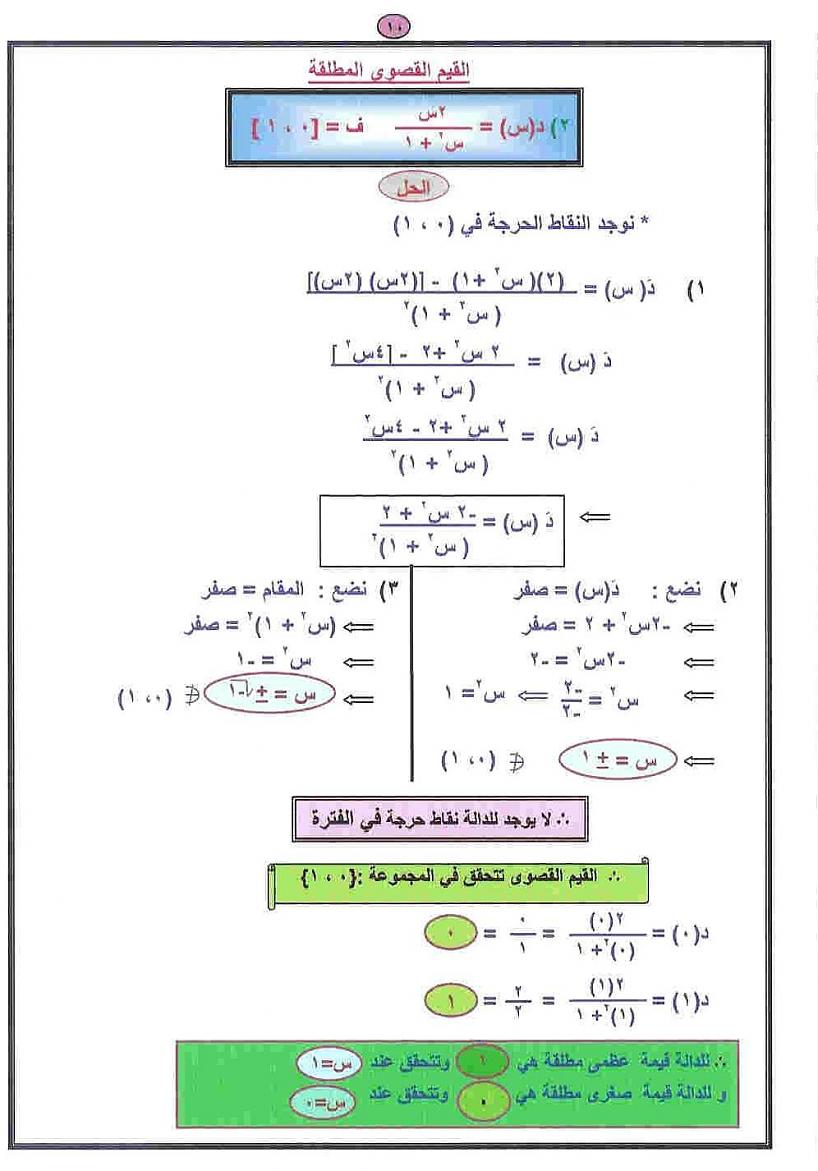 ١٠
القيم القصوى المطلقة
٢) د(س) = ٢س / (س² + ١) ف = [٠ ، ١]
الحل
* نوجد النقاط الحرجة في (٠ ، ١)
١) دَ( س) = (٢)( س² +١) - [(٢س) (٢س)] / ( س² + ١)²
دَ (س) = ٢ س² +٢ - [٤س²] / ( س² + ١)²
دَ (س) = ٢ س² +٢ - ٤س² / ( س² + ١)²
⇐ دَ (س) = -٢ س² + ٢ / ( س² + ١)²
٢) نضع : دَ(س) = صفر
⇐ -٢س² + ٢ = صفر
⇐ -٢س² = -٢
⇐ س² = -٢ / -٢ ⇐ س² = ١
⇐ س = ± ١ ∌ (٠ ، ١)
٣) نضع : المقام = صفر
⇐ (س² + ١)² = صفر
⇐ س² = -١
⇐ س = ± √-١ ∌ (٠ ، ١)
∴ لا يوجد للدالة نقاط حرجة في الفترة
∴ القيم القصوى تتحقق في المجموعة :{٠ ، ١}
د(٠) = ٢(٠) / (٠)² + ١ = ٠ / ١ = ٠
د(١) = ٢(١) / (١)² + ١ = ٢ / ٢ = ١
∴ للدالة قيمة عظمى مطلقة هي ١ وتتحقق عند س=١
و للدالة قيمة صغرى مطلقة هي ٠ وتتحقق عند س=٠